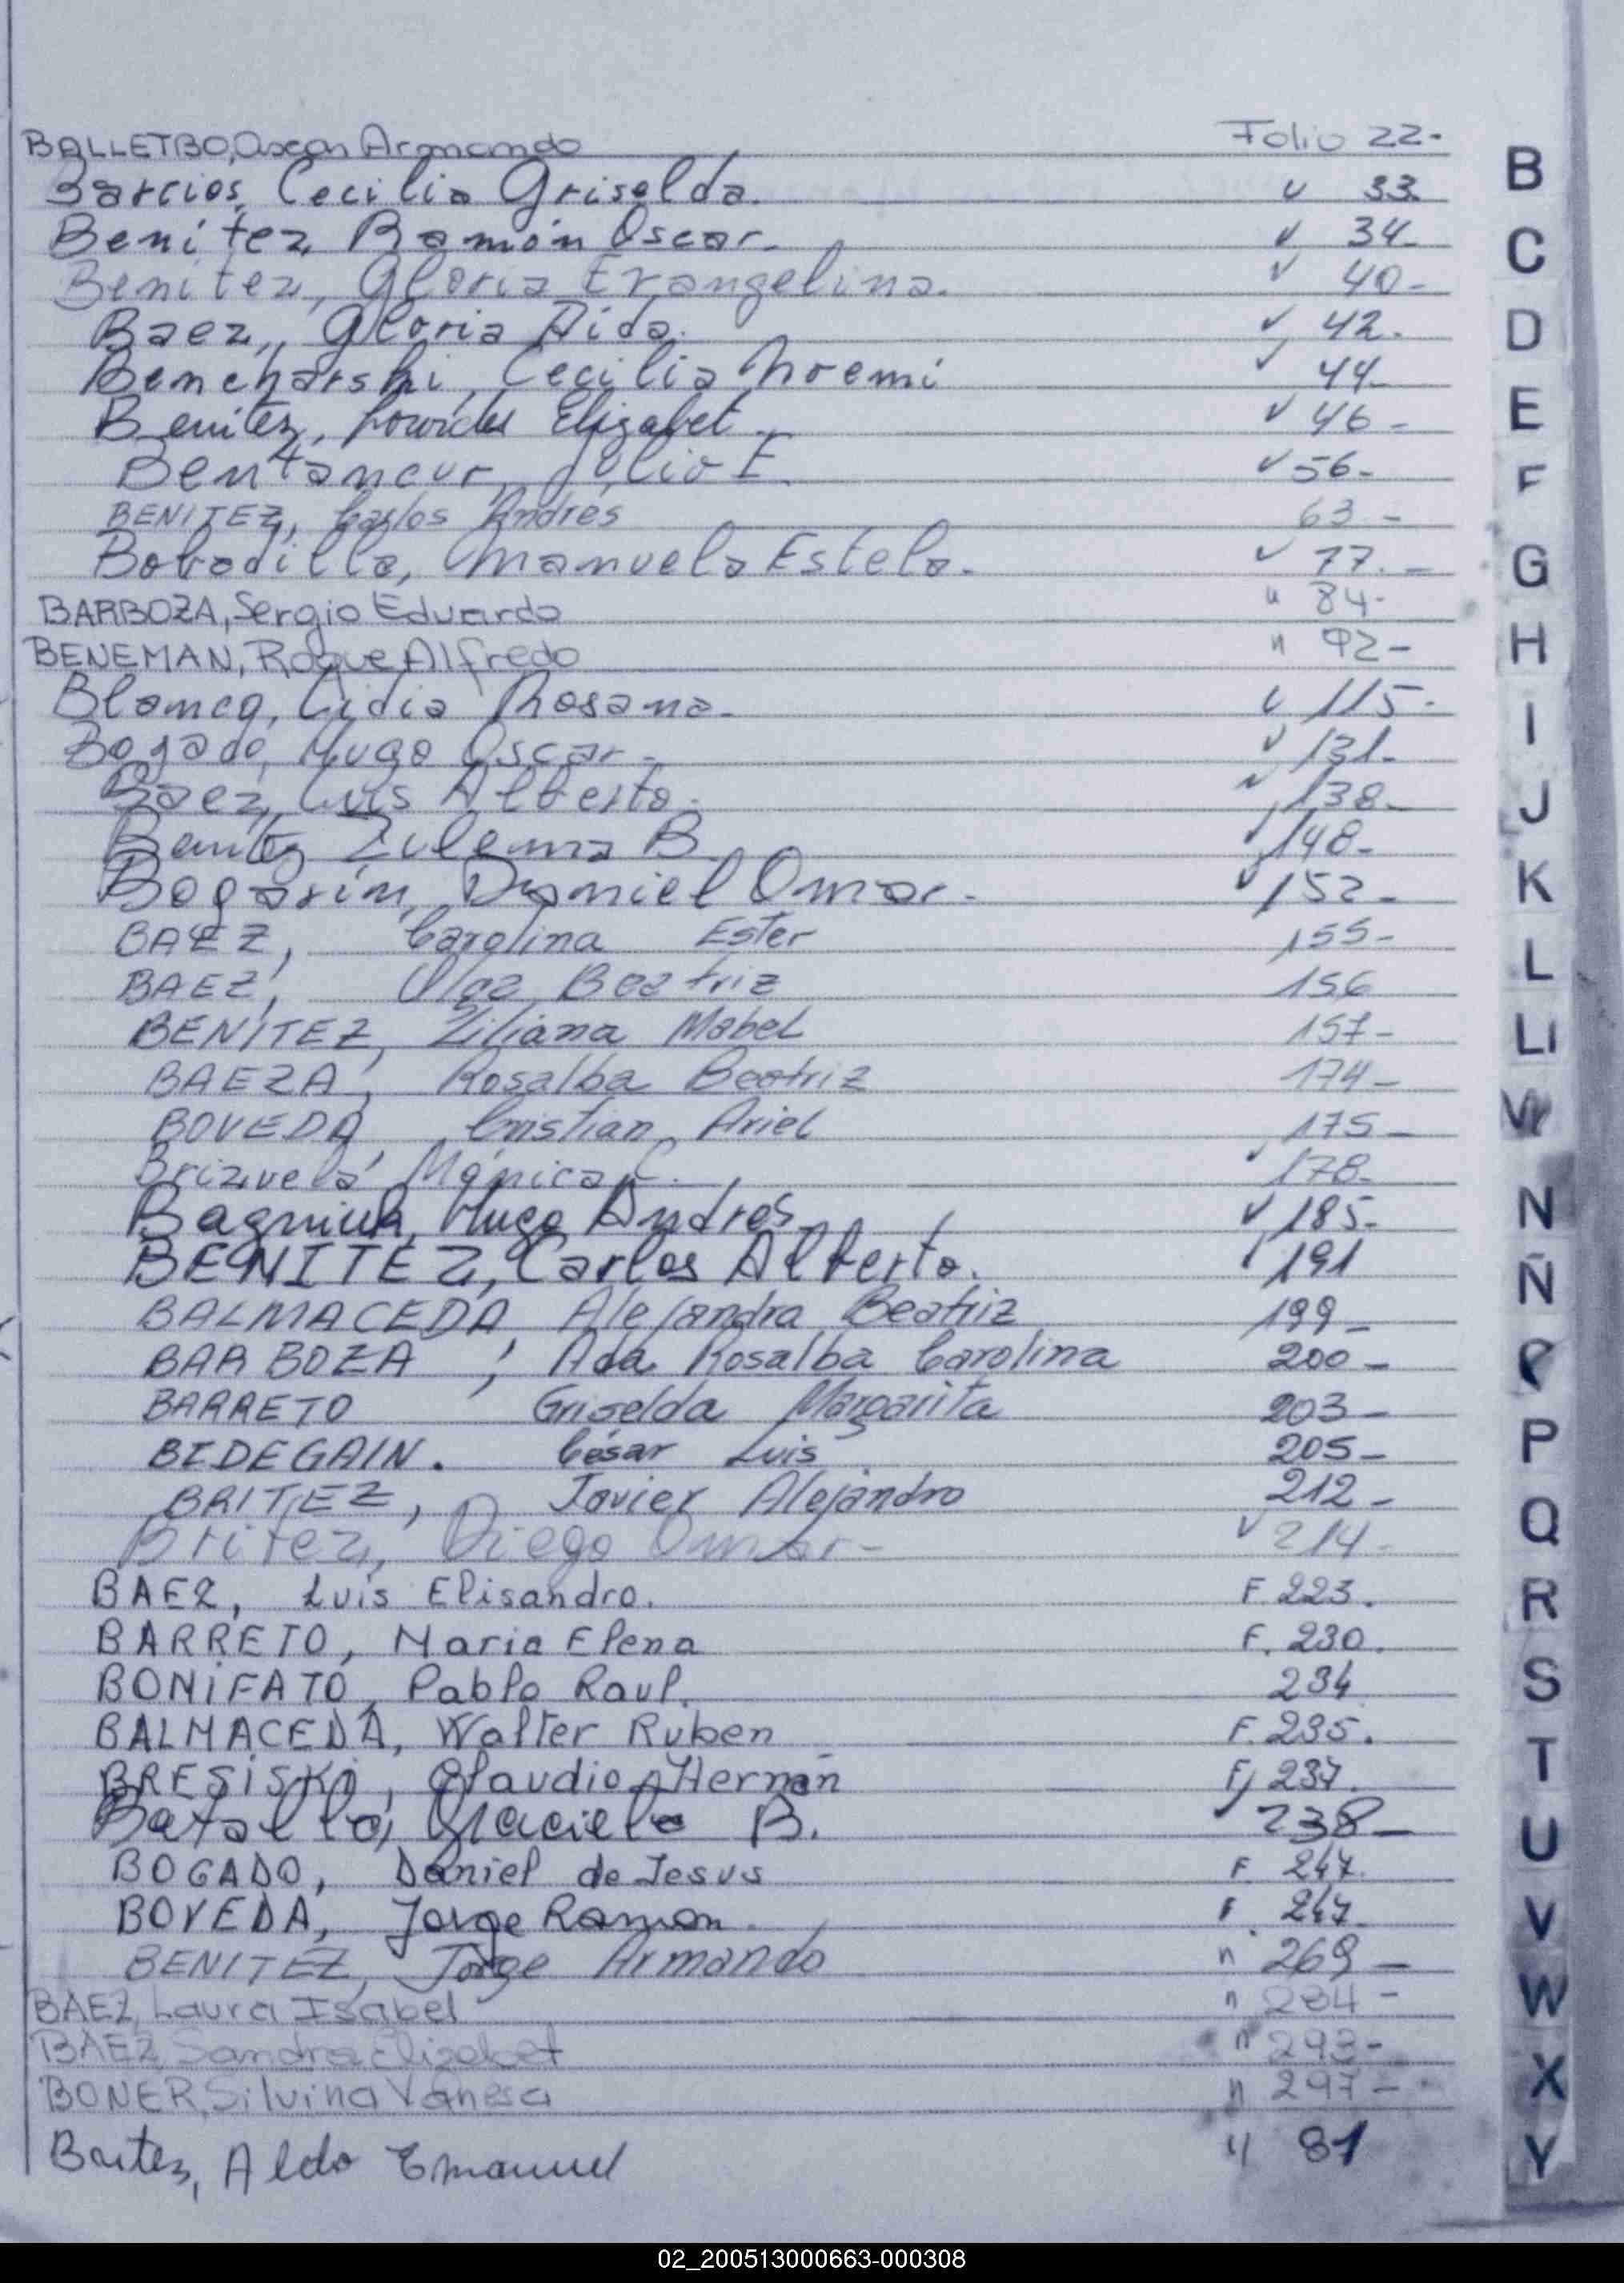 BALLETBO, Oscar Armando Folio 22-
Barrios, Cecilia Griselda. " 33.
Benitez Ramón Oscar. " 34-
Benitez, Gloria Evangelina. " 40-
Baez, Gloria Aida. " 42.
Bencharski, Cecilia Noemi " 44-
Benitez, Lourdes Elizabet. " 46-
Bentancur, Julio E. " 56-
BENITEZ, Carlos Andrés 63.-
Bobadilla, Manuela Estela. " 77.-
BARBOZA, Sergio Eduardo " 84-
BENEMAN, Roque Alfredo " 92-
Blanco, Lidia Rosana. " 115-
Bogado, Hugo Oscar- " 131-
Baez, Luis Alberto. " 138-
Benitez Zulema B. " 148-
Bogarín, Daniel Omar. " 152-
BAEZ, Carolina Ester 155-
BAEZ, Olga Beatriz 156
BENITEZ, Liliana Mabel 157-
BAEZA, Rosalba Beatriz 174-
BOVEDA, Cristian Ariel 175-
Brizuela, Mónica C. " 178-
Bagniuk, Hugo Andres. " 185-
BENITEZ, Carlos Alberto. " 191
BALMACEDA, Alejandra Beatriz 199-
BARBOZA, Ada Rosalba Carolina 200-
BARRETO Griselda Margarita 203-
BIDEGAIN. César Luis 205-
BRITEZ, Javier Alejandro 212-
Britez, Diego Omar- " 214-
BAEZ, Luis Elisandro. F. 223.
BARRETO, Maria Elena F. 230.
BONIFATO, Pablo Raul. 234
BALMACEDA, Walter Ruben F. 235.
BRESISKI, Claudio Hernan F, 237.
Batalla, Graciela B. " 238-
BOGADO, Daniel de Jesus F 247.
BOVEDA, Jorge Ramon. F. 247
BENITEZ, Jorge Armando " 269-
BAEZ, Laura Isabel " 284-
BAEZ, Sandra Elizabet " 293-
BONER, Silvina Vanesa " 297-
Aldo Emanuel " 81
B
C
D
E
F
G
H
I
J
K
L
Ll
N
Ñ
P
Q
R
S
T
U
V
W
X
Y
02_200513000663-000308